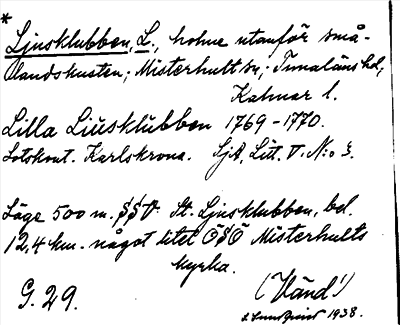 *
Ljusklubben, L., holme utanför små-
landskusten; Misterhult sn; Tunaläns hd,
Kalmar l.
Lilla Liusklubben 1769-1770.
Lotskont. Karlskrona. SjA, Litt. V. N:o 3.
Läge 500 m. SSV St. Ljusklubben, bel.
12,4 km. något litet ÖSÖ Misterhults
kyrka.
G. 29.
(Vänd!)
1938.